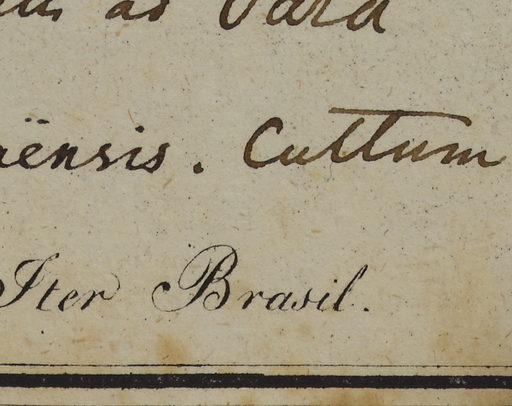 ad Pará
ënsis. Cultum
Iter Brasil.